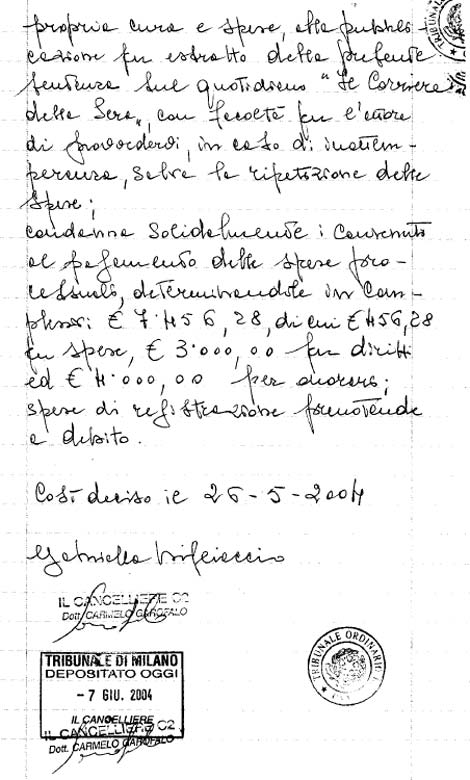 propria cura e spese, alla pubbli-
cazione per estratto della presente
sentenza sul quotidiano "Il Corriere
della Sera", con facoltà per l'attore
di provvedervi, in caso di inottem-
peranza, salva la ripetizione delle
spese;
condanna solidalmente i convenuti
al pagamento delle spese pro-
cessuali, determinandole in com-
plessivi € 7.456,28, di cui € 456,28
per spese, € 3.000,00 per diritti
ed € 4.000,00 per onorari;
spese di registrazione prenotande
a debito.
Così deciso il 26-5-2004
Gabriella
IL CANCELLIERE C2
Dott. CARMELO GAROFALO
TRIBUNALE DI MILANO
DEPOSITATO OGGI
- 7 GIU. 2004
IL CANCELLIERE
IL CANCELLIERE C2
Dott. CARMELO GAROFALO
TRIBUNALE ORDINARIO
TRIBUNALE